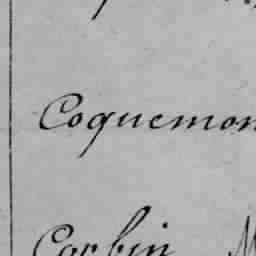 Coquemon
Corbin M